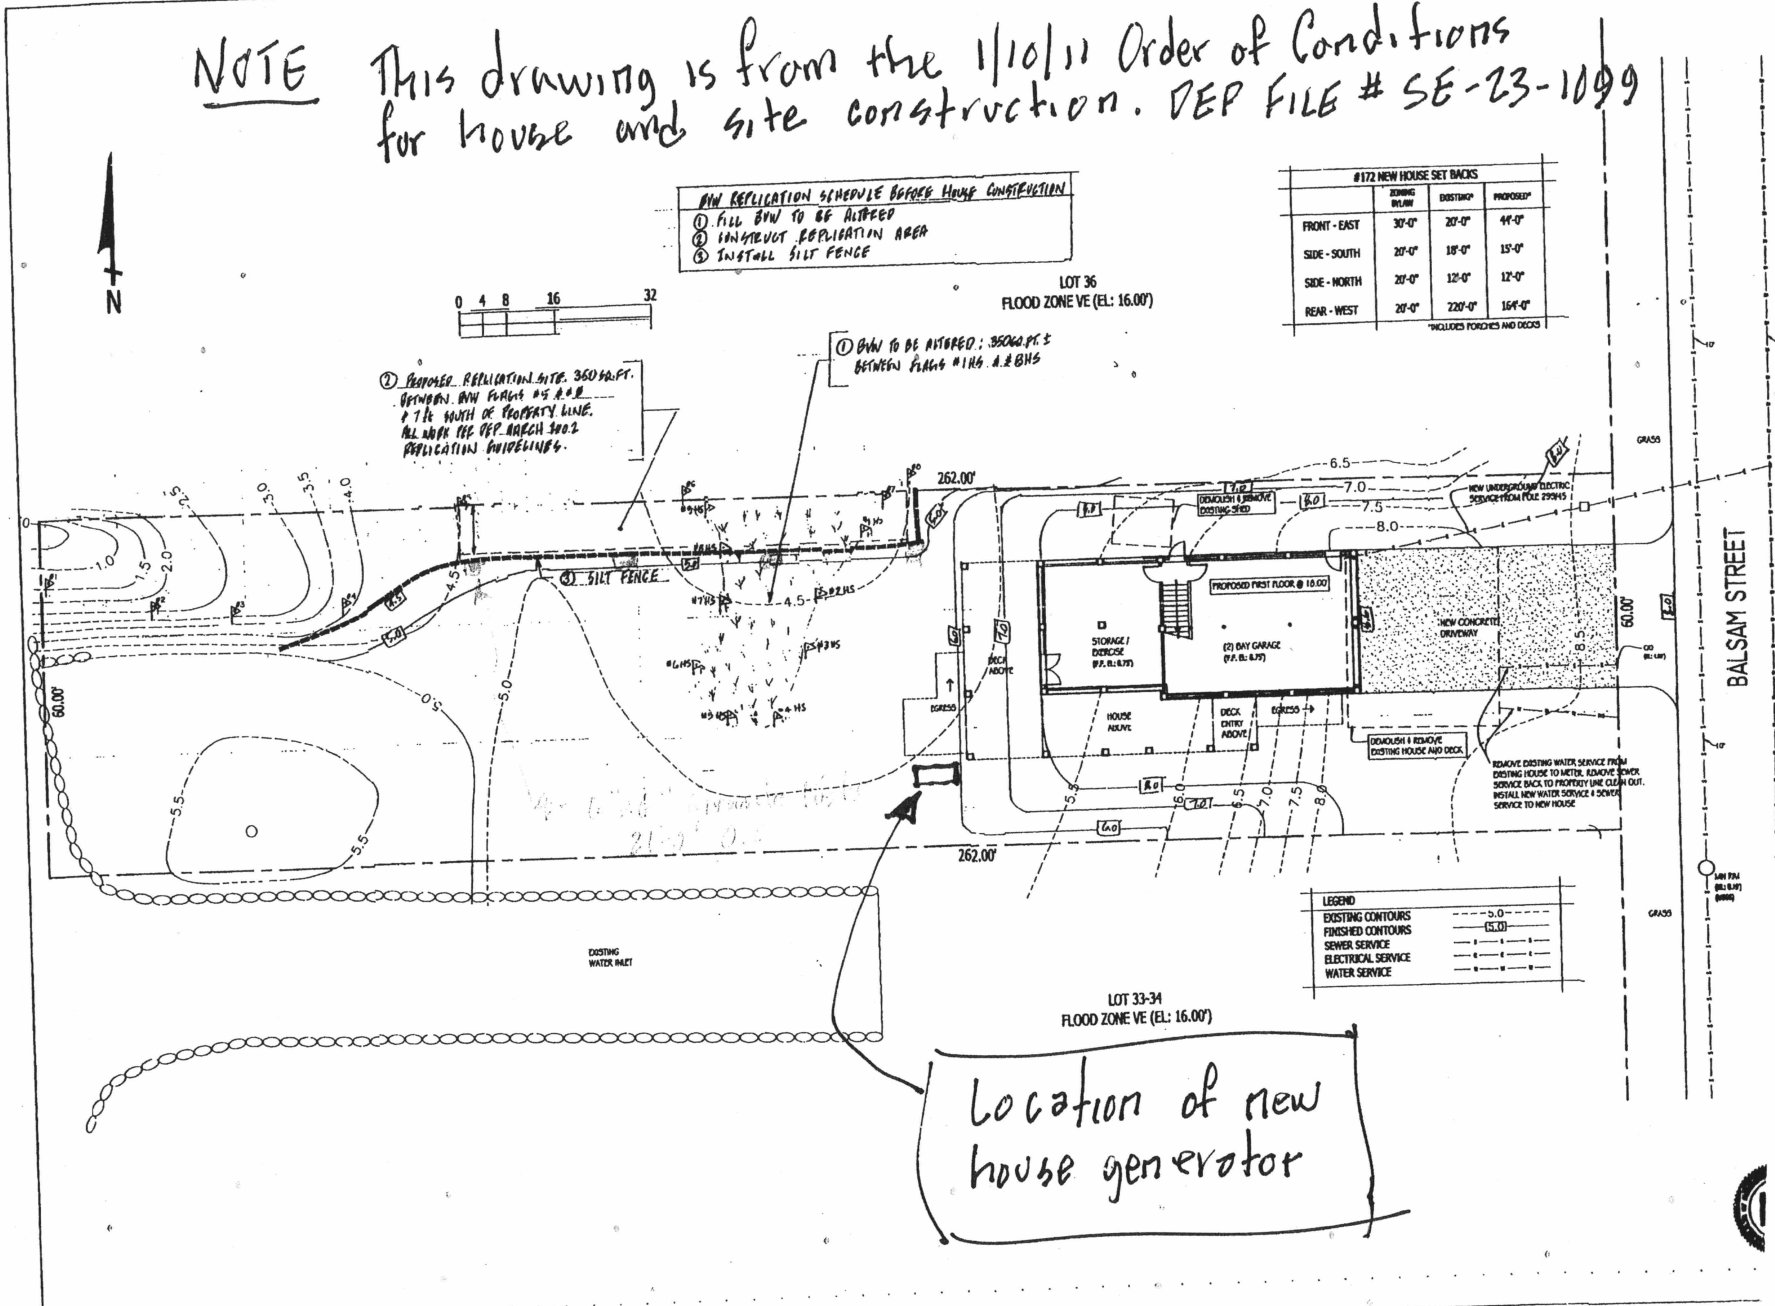 NOTE This drawing is from the 1/10/11 Order of Conditions
for house and site construction. DEP FILE # SE-23-1099
N
BVW REPLICATION SCHEDULE BEFORE HOUSE CONSTRUCTION
① FILL BVW TO BE ALTERED
② CONSTRUCT REPLICATION AREA
③ INSTALL SILT FENCE
#172 NEW HOUSE SET BACKS
ZONING BYLAW EXISTING* PROPOSED*
FRONT - EAST 30'-0" 20'-0" 44'-0"
SIDE - SOUTH 20'-0" 18'-0" 15'-0"
SIDE - NORTH 20'-0" 12'-0" 12'-0"
REAR - WEST 20'-0" 220'-0" 164'-0"
*INCLUDES PORCHES AND DECKS
LOT 36
FLOOD ZONE VE (EL: 16.00')
0 4 8 16 32
① BVW TO BE ALTERED: 350 SQ.FT. ±
BETWEEN FLAGS #1HS & #8HS
② PROPOSED REPLICATION SITE. 360 SQ.FT.
BETWEEN BVW FLAGS
SOUTH OF PROPERTY LINE.
ALL WORK PER DEP MARCH 2002
REPLICATION GUIDELINES.
262.00'
GRASS
6.5
7.0
7.5
8.0
NEW UNDERGROUND ELECTRIC
SERVICE FROM POLE 299/45
DEMOLISH & REMOVE
EXISTING SHED
2.5
3.0
3.5
4.0
1.0
1.5
2.0
4.5
③ SILT FENCE
5.0
4.5
#2HS
#3HS
#4HS
#6HS
#7HS
PROPOSED FIRST FLOOR @ 18.00'
STORAGE /
EXERCISE
(F.F. EL: 8.75')
(2) BAY GARAGE
(F.F. EL: 8.75')
NEW CONCRETE
DRIVEWAY
8.5
60.00'
BALSAM STREET
DECK
ABOVE
EGRESS
HOUSE
ABOVE
DECK
ENTRY
ABOVE
EGRESS
DEMOLISH & REMOVE
EXISTING HOUSE AND DECK
REMOVE EXISTING WATER SERVICE FROM
EXISTING HOUSE TO METER. REMOVE SEWER
SERVICE BACK TO PROPERTY LINE CLEAN OUT.
INSTALL NEW WATER SERVICE & SEWER
SERVICE TO NEW HOUSE
60.00'
5.0
5.0
5.5
5.5
5.5
6.0
6.5
7.0
7.5
8.0
8.0
7.0
6.0
262.00'
GRASS
EXISTING
WATER INLET
LEGEND
EXISTING CONTOURS 5.0
FINISHED CONTOURS 5.0
SEWER SERVICE
ELECTRICAL SERVICE
WATER SERVICE
LOT 33-34
FLOOD ZONE VE (EL: 16.00')
Location of new
house generator